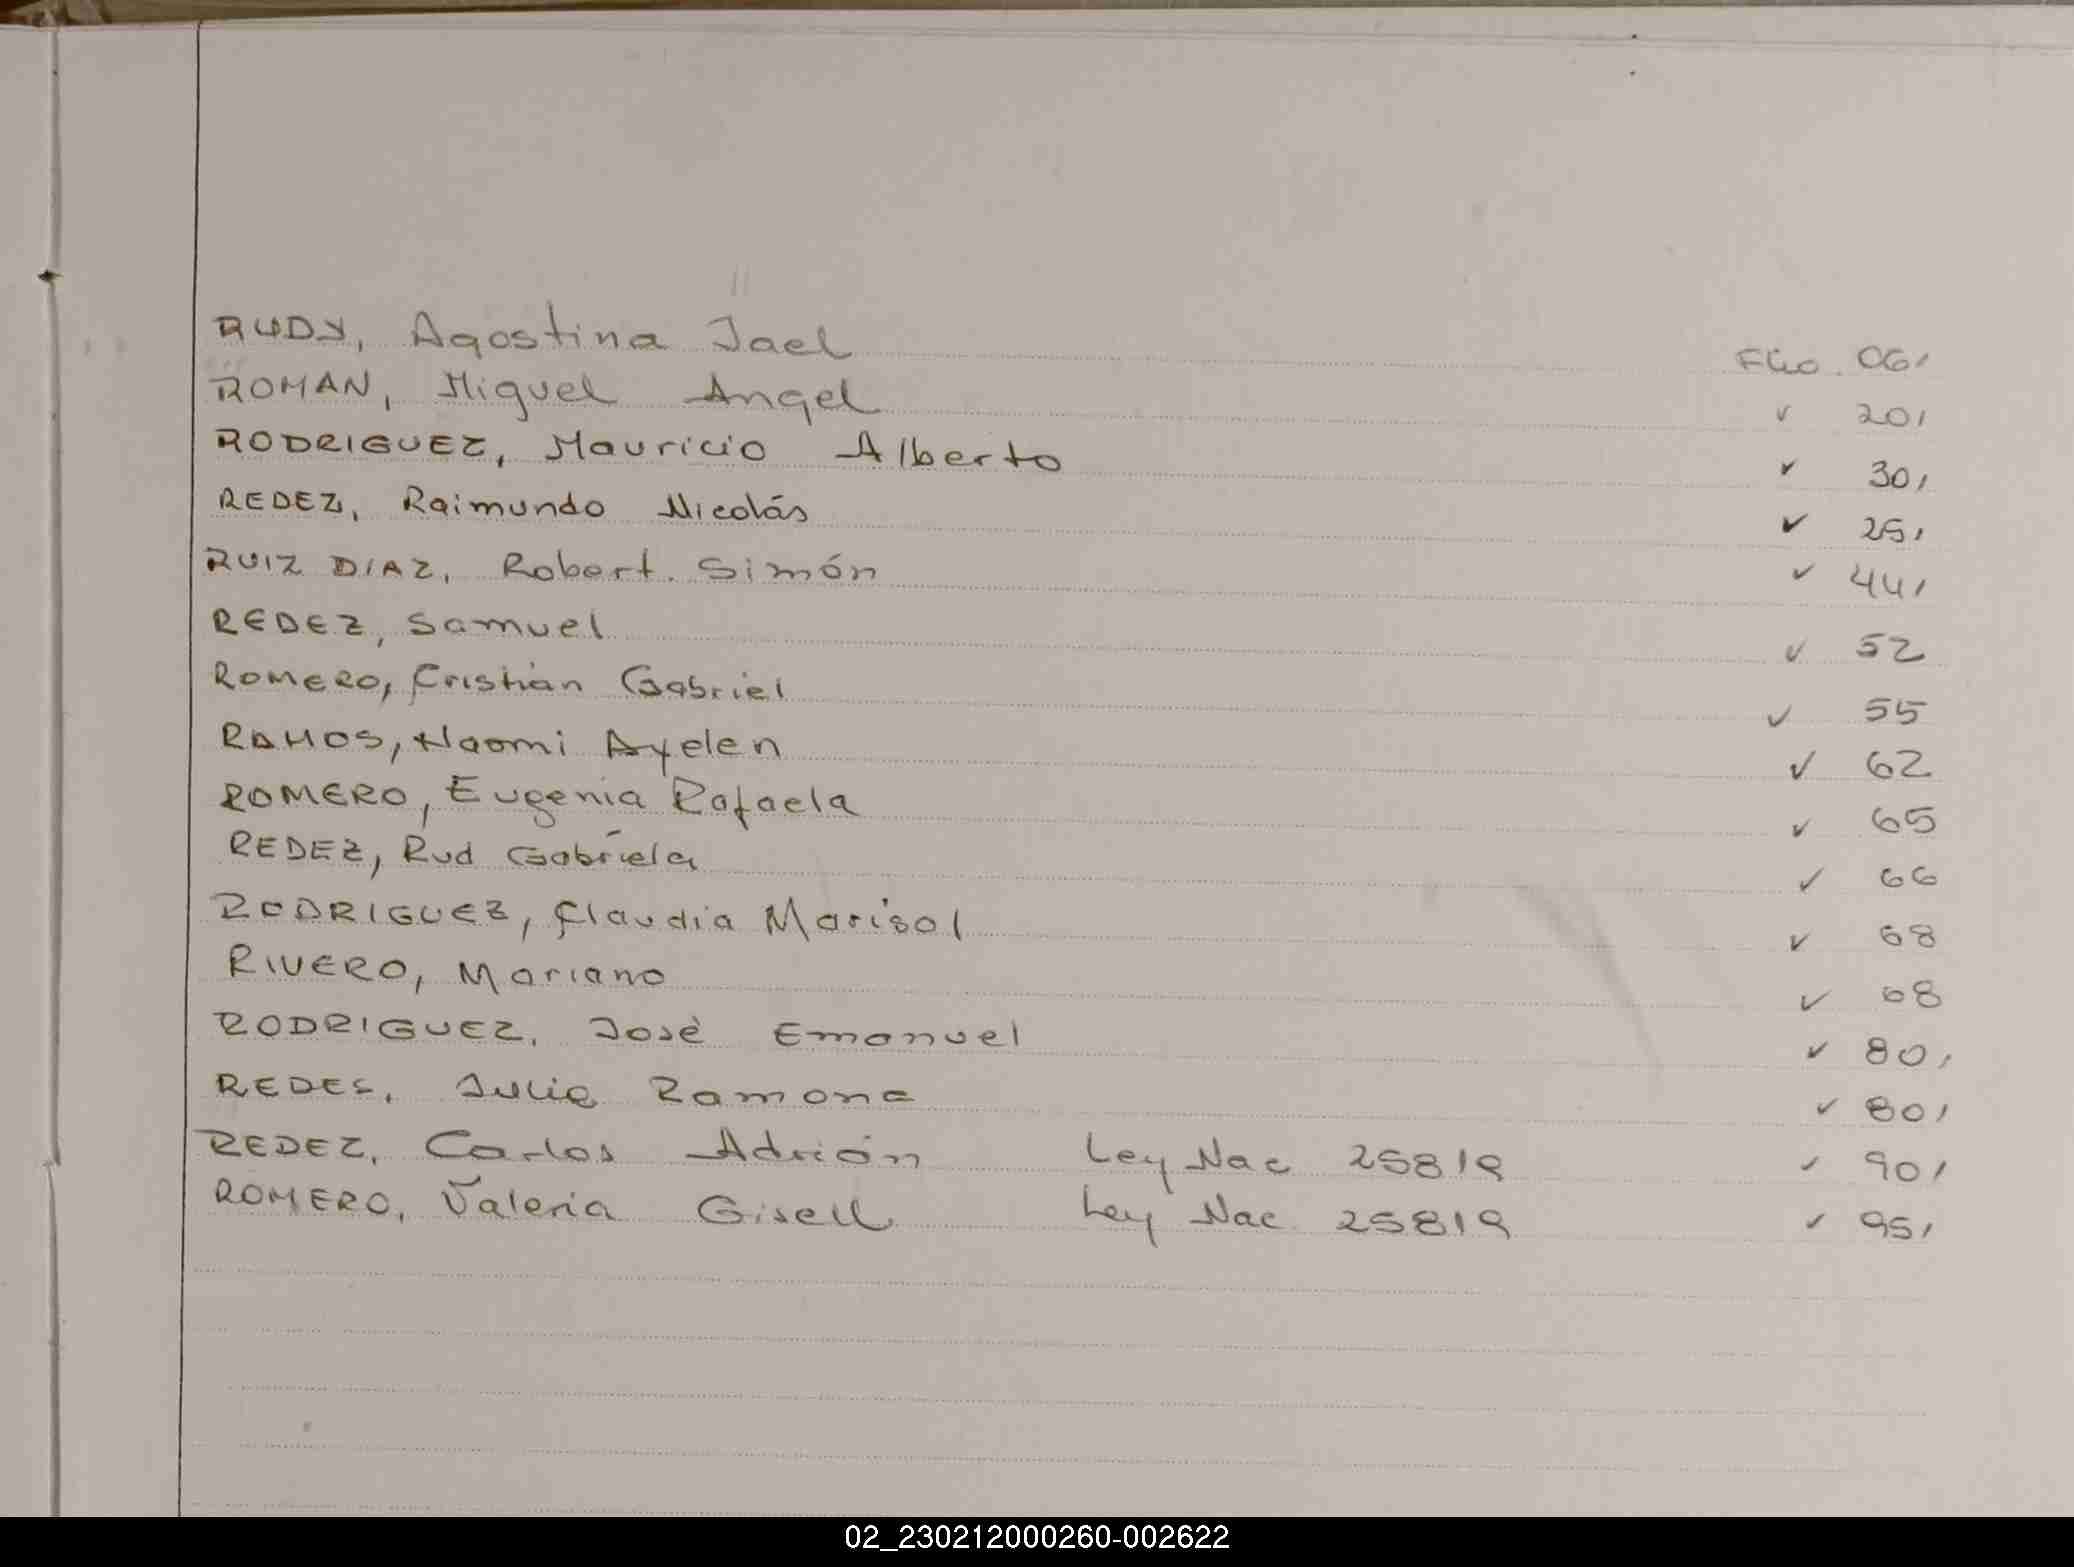 RUDY, Agostina Jael Flio. 06,
ROMAN, Miguel Angel ✓ 20,
RODRIGUEZ, Mauricio Alberto ✓ 30,
REDEZ, Raimundo Nicolás ✓ 25,
RUIZ DIAZ, Robert. Simón ✓ 44,
REDEZ, Samuel ✓ 52
ROMERO, Cristián Gabriel ✓ 55
RAMOS, Naomi Ayelen ✓ 62
ROMERO, Eugenia Rafaela ✓ 65
REDEZ, Rud Gabriela ✓ 66
RODRIGUEZ, Claudia Marisol ✓ 68
RIVERO, Mariano ✓ 68
RODRIGUEZ, José Emanuel ✓ 80,
REDES, Julia Ramona ✓ 80,
REDEZ, Carlos Adrión Ley Nac 25819 ✓ 90,
ROMERO, Valeria Gisell Ley Nac 25819 ✓ 95,
02_230212000260-002622